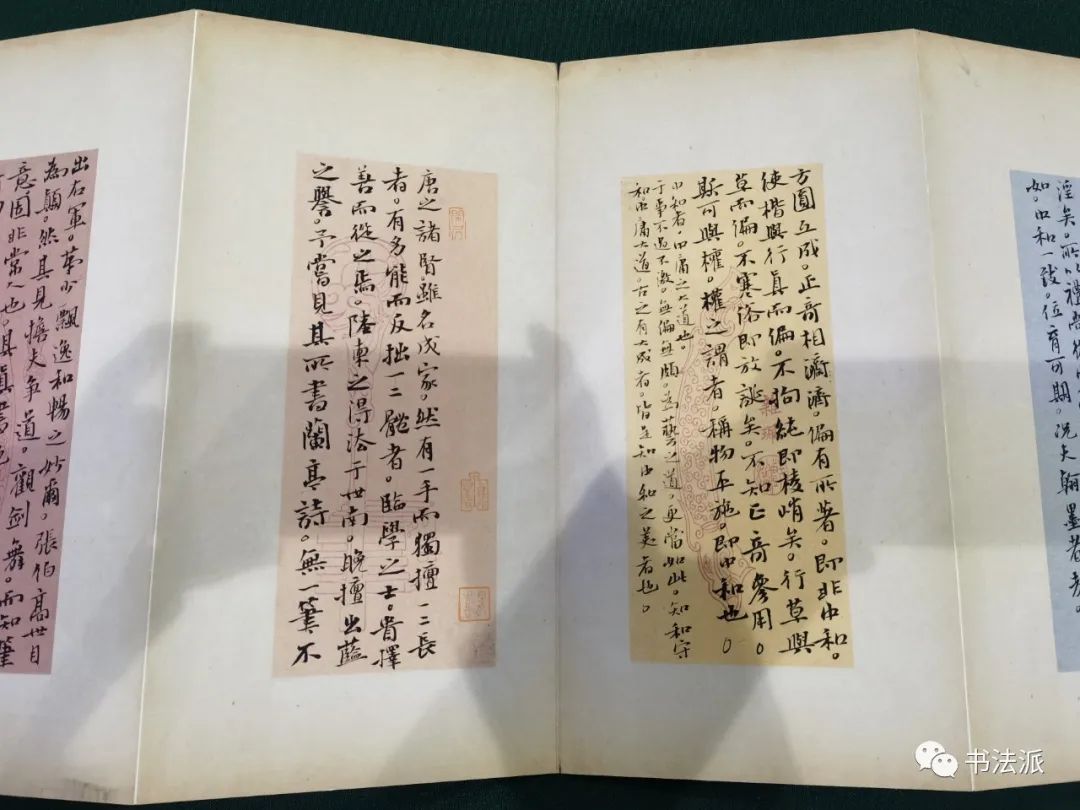 淫矣。所以禮
如。中和一致。位育可期。況夫翰墨者
方圓互成。正奇相濟濟。偏有所著。即非中和。
使楷與行真而偏。不拘純即棱峭矣。行草與
草而偏。不寒洛即放誕矣。不知正奇參用。
可與權。權之謂者。稱物平施。即中和也。
知者，中庸之大道也。
于事不過不激。無偏無頗。為藝之道。更當如此。知和守
和中庸大道。古之有大成者。皆是知中和之美者也。
唐之諸賢。雖名成家。然有一手而獨擅一二長
者。有多能而反拙一二體者。臨學之士。貴擇
善而從之焉。陸柬之得法于世南。晚擅出藍
之譽。予嘗見其所書蘭亭詩。無一筆不
出右軍。第少飄逸和暢之妙爾。張伯高世目
為顛。然其見擔夫爭道。觀劍舞。而知筆
意固非常人也。其真書
书法派